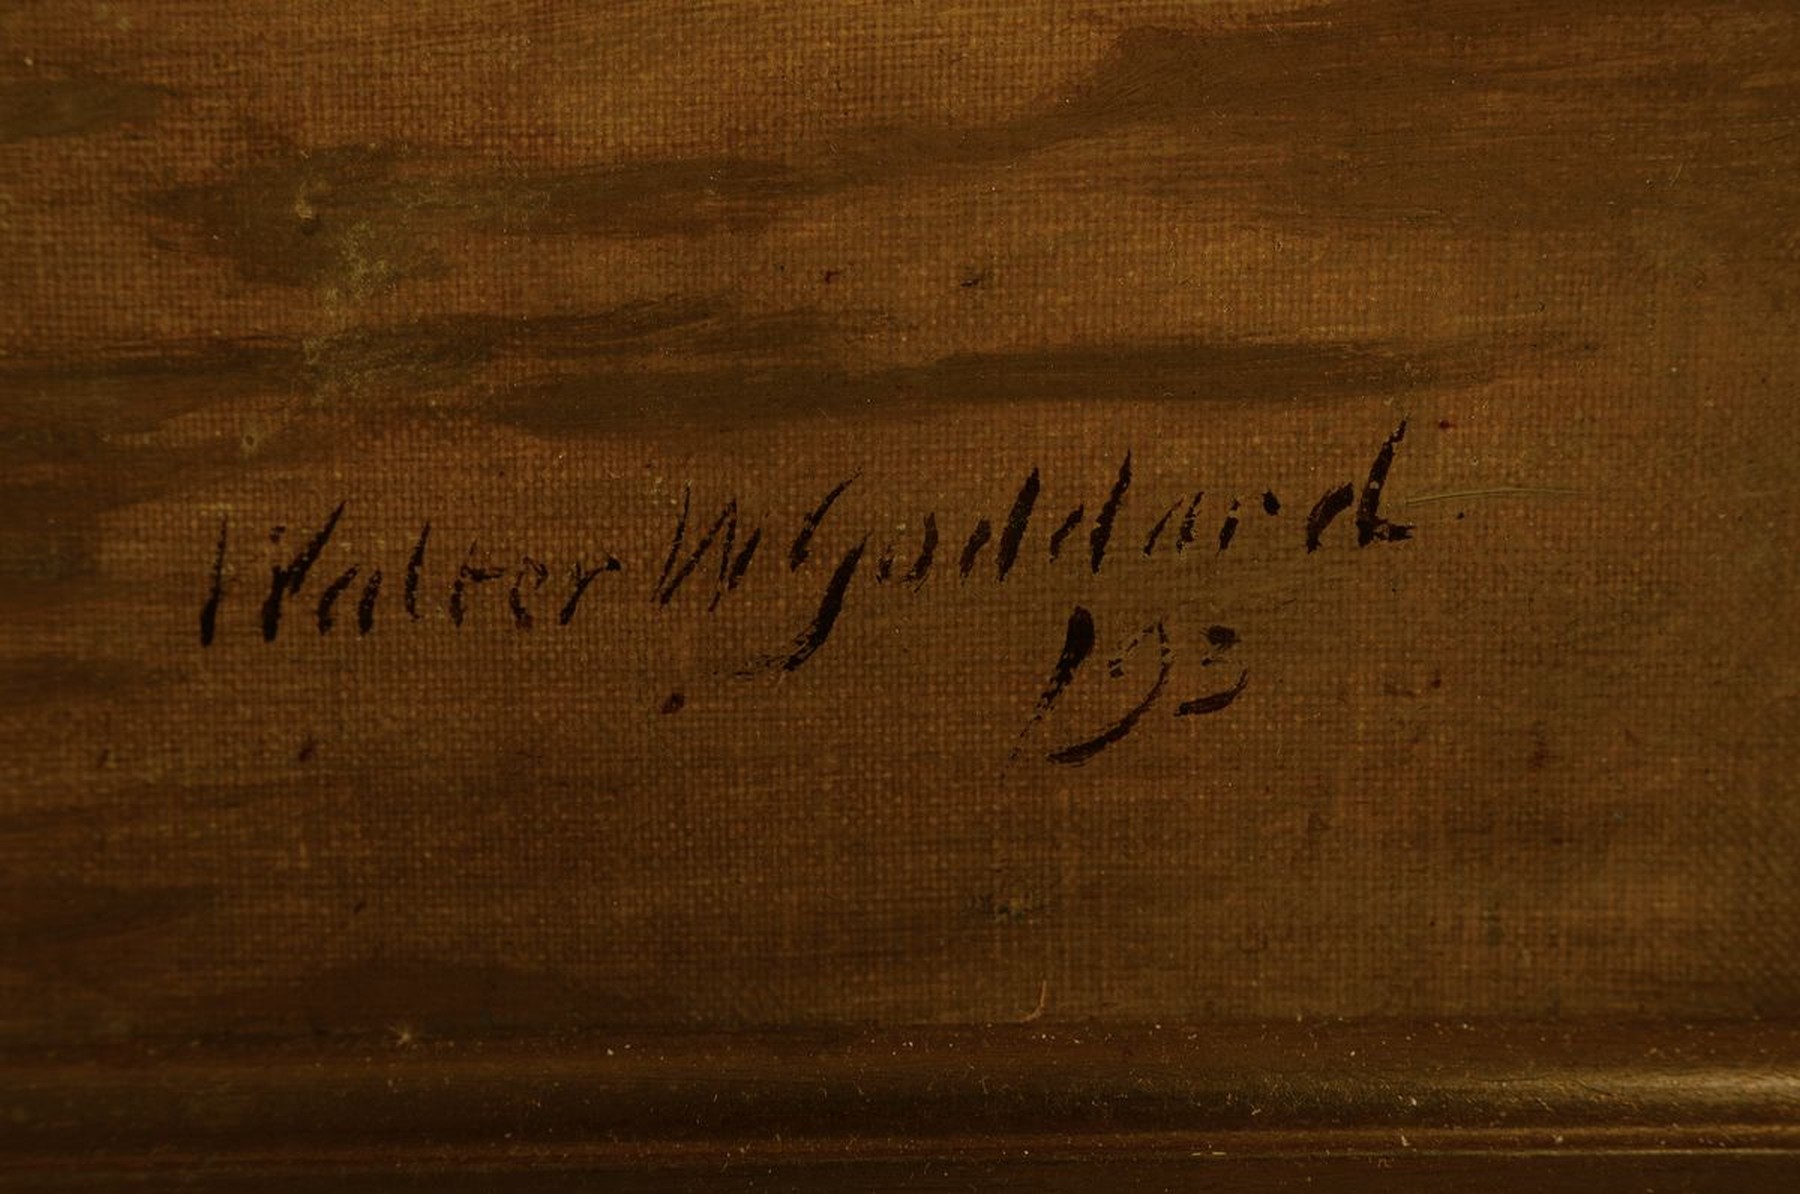 Walter W Goddard.
193